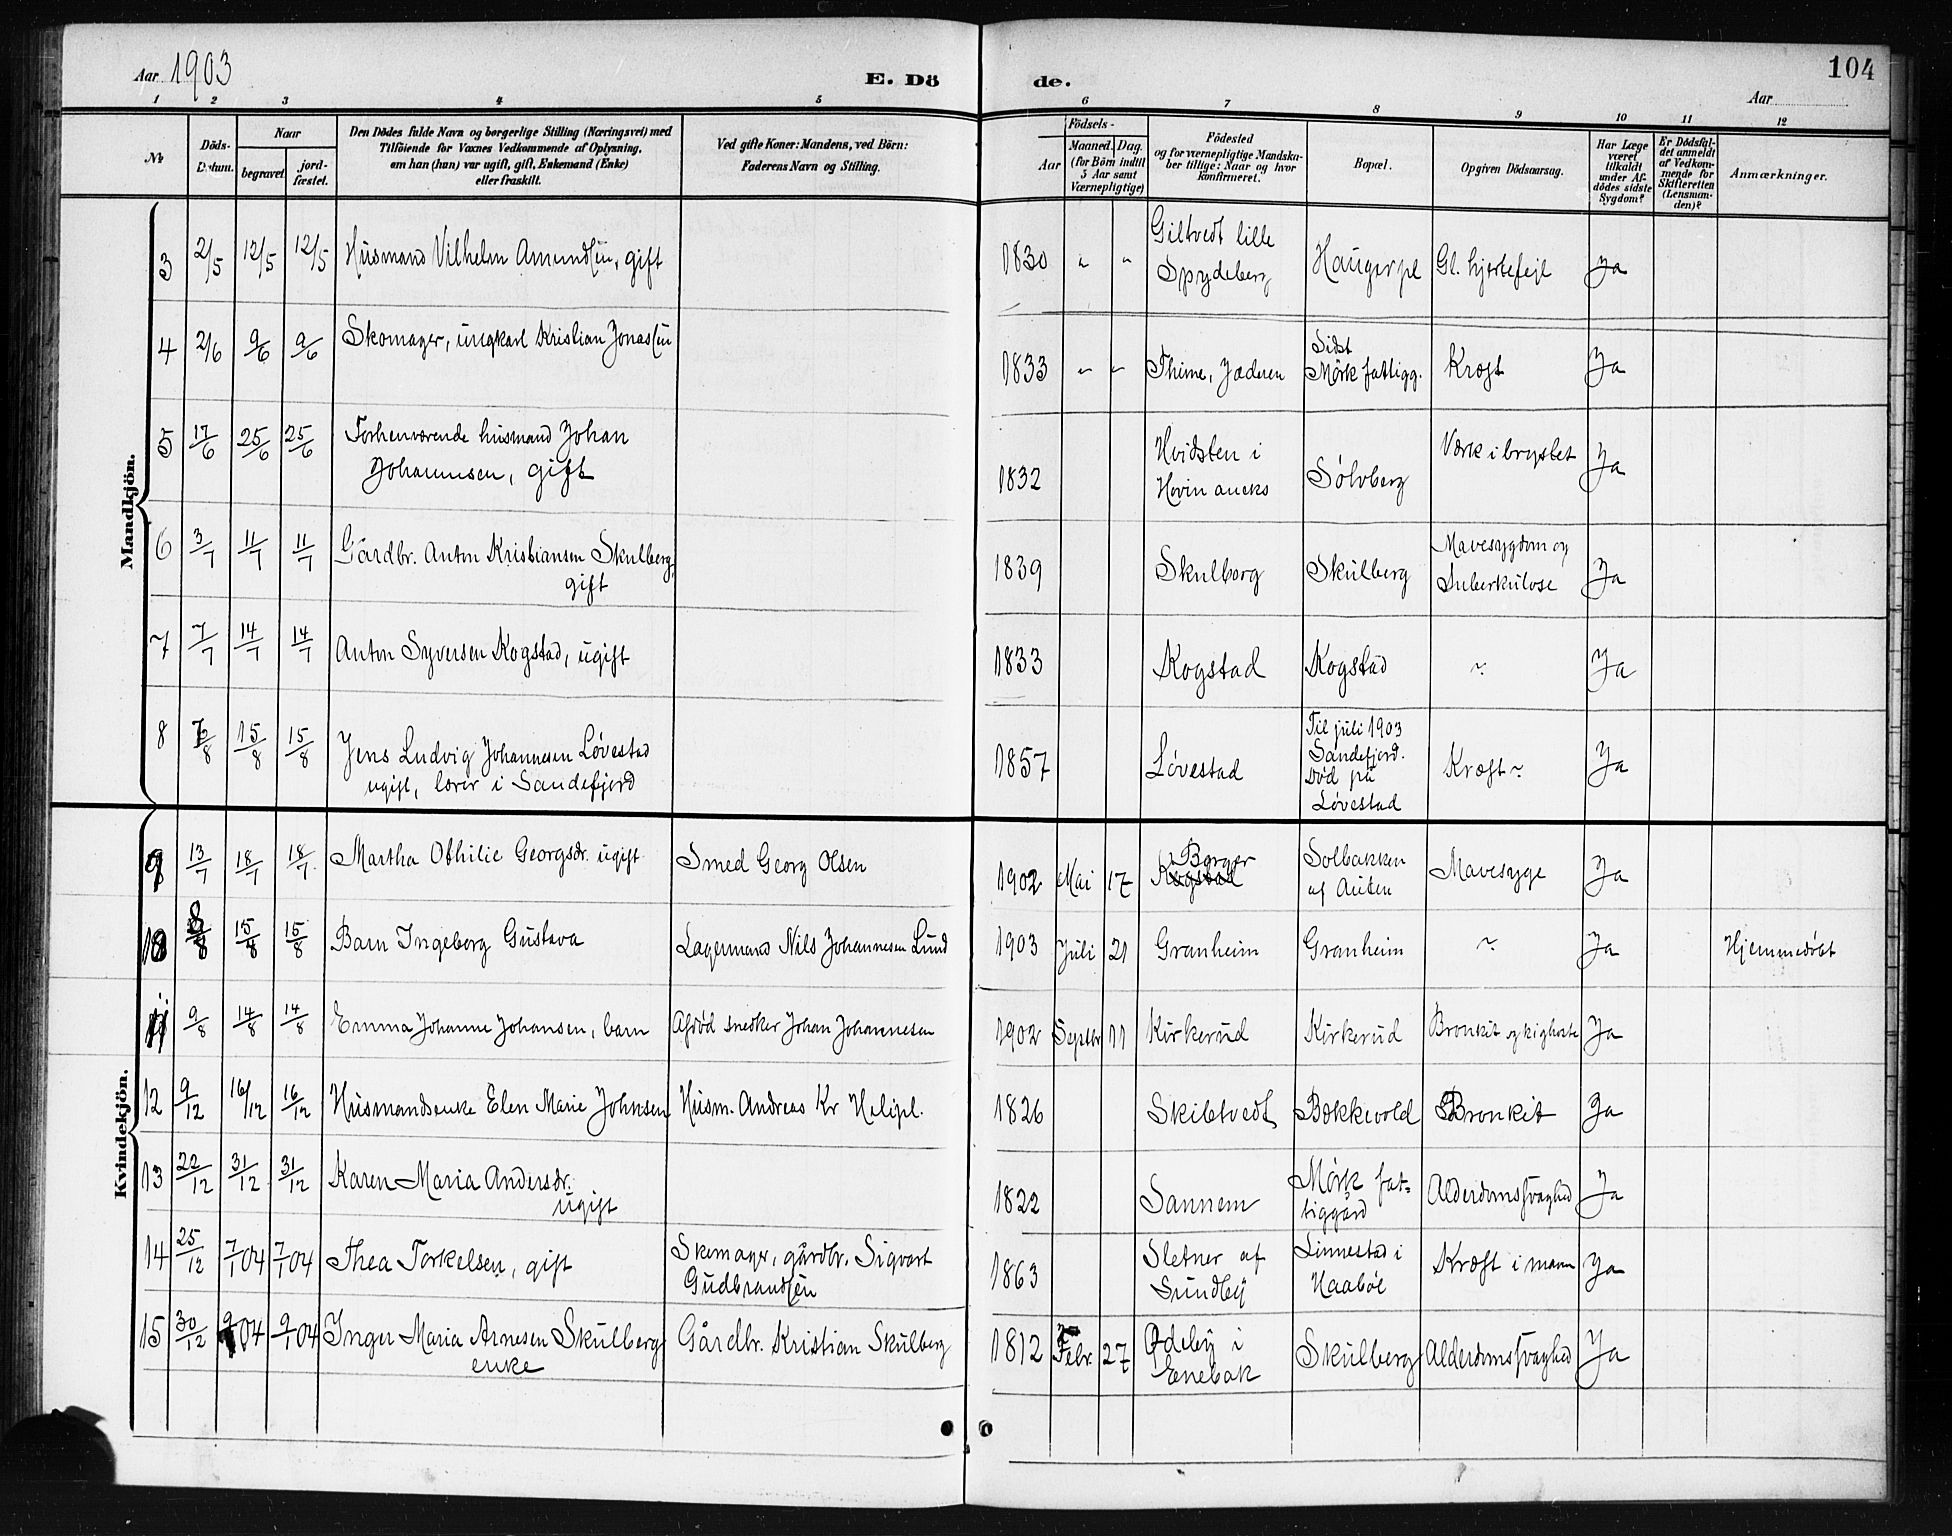 Aar 1903
E. Dö
de.
104
Aar
1 2 3 4 5 6 7 8 9 10 11 12
No
Döds-Datum.
Naar
begravet
jordfæstet.
Den Dödes fulde Navn og borgerlige Stilling (Næringsvei) med
Tilföiende for Voxnes Vedkommende af Oplysning,
om han (hun) var ugift, gift, Enkemand (Enke)
eller fraskilt.
Ved gifte Koner: Mandens, ved Börn:
Faderens Navn og Stilling.
Födsels-
Aar
Maaned. Dag.
(for Börn indtil
5 Aar samt
Værnepligtige)
Födested
og for værnepligtige Mandska-
ber tillige: Naar og hvor
konfirmeret.
Bopæl.
Opgiven Dödsaarsag.
Har Læge
været
tilkaldt
under Af-
dödes sidste
Sygdom?
Er Dödsfal-
det anmeldt
af Vedkom-
mende for
Skifteretten
(Lensman-
den)?
Anmærkninger.
Mandkjön.
3 2/5 12/5 12/5 Husmand Vilhelm Amundsen, gift 1830 " " Giltvedt lille Spydeberg Haugerpl Gl. hjertefejl Ja
4 2/6 9/6 9/6 Skomager, ungkarl Kristian Jonassen 1833 " " Thime, Jæderen Sidst Mörk fattigg. Kræft Ja
5 17/6 25/6 25/6 Forhenværende husmand Johan
Johannesen, gift 1832 Hvidsten i Hovin aneks Sölvberg Værk i brystet Ja
6 3/7 11/7 11/7 Gårdbr. Anton Kristiansen Skulberg,
gift 1839 Skulberg Skulberg Mavesygdom og Tuberkulose Ja
7 7/7 14/7 14/7 Anton Syversen Kogstad, ugift 1833 Kogstad Kogstad ~ Ja
8 7/8 15/8 15/8 Jens Ludvig Johannesen Lövestad
ugift, lærer i Sandefjord 1857 Lövestad Til juli 1903 Sandefjord. Död på Lövestad Kræft ~ Ja
Kvindekjön.
9 13/7 18/7 18/7 Martha Othilie Georgsdr. ugift Smed Georg Olsen 1902 Mai 17 Kogstad Borger Solbakken af Auten Mavesyge Ja
10 8/8 15/8 15/8 Barn Ingeborg Gustava Lagermand Nils Johannesen Lund 1903 Juli 21 Granheim Granheim ~ Ja Hjemmedöbt
11 9/8 14/8 14/8 Emma Johanne Johansen, barn Afdöd snedker Johan Johannesen 1902 Septbr 11 Kirkerud Kirkerud Bronkit og kighoste Ja
12 9/12 16/12 16/12 Husmandsenke Elen Marie Johnsen Husm. Andreas Kr Helipl. 1826 Skibtvedt Bækkevold Bronkit Ja
13 22/12 31/12 31/12 Karen Maria Andersdr.
ugift 1822 Sannem Mörk fat=
tiggård Alderdomssvaghed Ja
14 25/12 7/1 04 7/1 04 Thea Torkelsen, gift Skomager, gårdbr. Sigvart
Gudbrandsen 1863 Sletner af Sundby Linnestad i Haaböl Kræft i maven Ja
15 30/12 9/1 04 9/1 04 Inger Maria Arnesen Skulberg
enke Gårdbr. Kristian Skulberg 1812 Febr. 27 Ödeby i Enebak Skulberg Alderdomssvaghed Ja